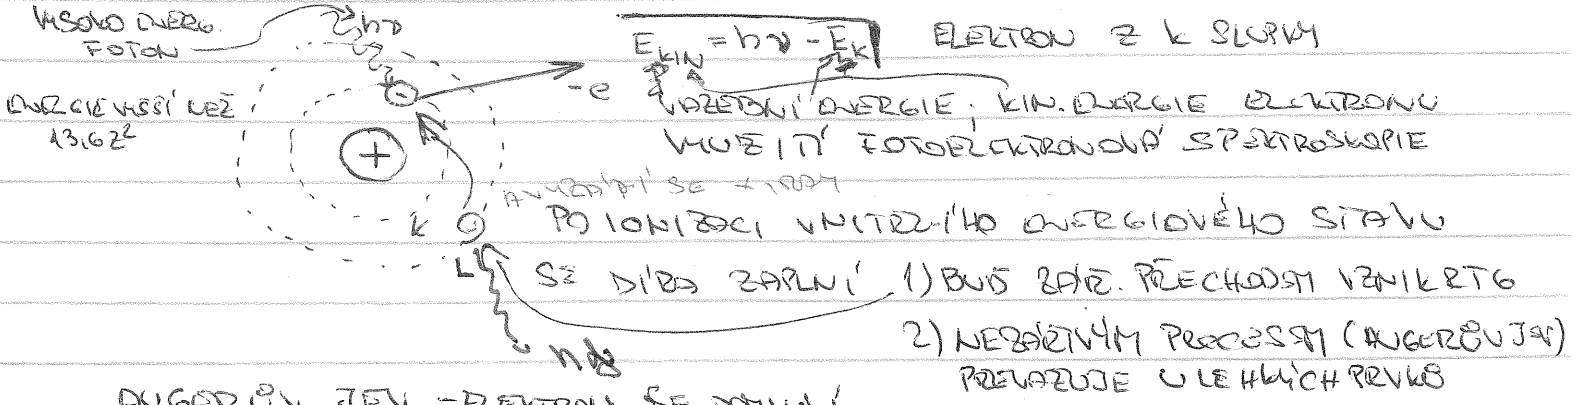 VYSOKO ENERG.
FOTON
hν
E_KIN = hν - E_K ELEKTRON Z K SLUPKY
-e
ENERGIE VYŠŠÍ NEŽ
13,6Z²
VAZEBNÍ ENERGIE, KIN. ENERGIE ELEKTRONU
VYUŽITÍ FOTOELEKTRONOVÁ SPEKTROSKOPIE
+
SE
K
PO IONIZACI VNITŘNÍHO ENERGIOVÉHO STAVU
L
SE DÍRA ZAPLNÍ 1) BUĎ ZÁŘ. PŘECHODEM VZNIK RTG
2) NEZÁŘIVÝM PROCESEM (AUGERŮV JEV)
PŘEVAZUJE U LEHKÝCH PRVKŮ
AUGERŮV JEV - ELEKTRON SE